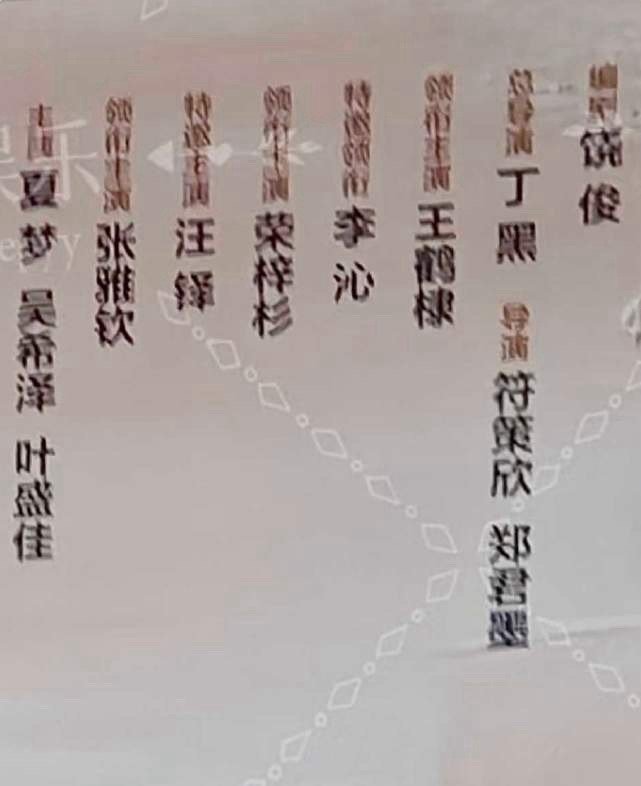 饶俊
总导演 丁黑 导演 符策欣 郑君墨
领衔主演 王鹤棣
特邀领衔 李沁
领衔主演 荣梓杉
特邀主演 汪铎
领衔主演 张雅钦
主演 夏梦 吴希泽 叶盛佳
乐